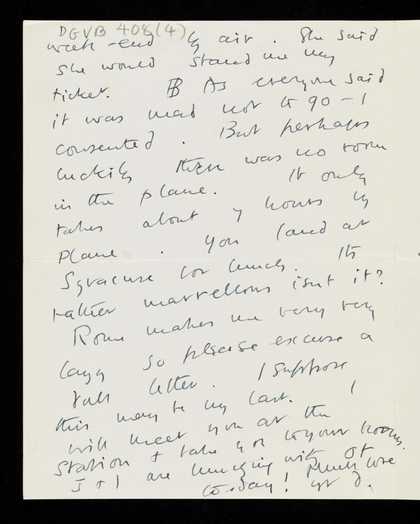 DGVB 408(4)
week-end by air. She said
she would stand me my
ticket. As everyone said
it was mad not to go - I
consented. But perhaps
luckily there was no room
in the plane. It only
takes about 7 hours by
plane. You land at
Syracuse for lunch. Its
rather marvellous isnt it?
Rome makes me very very
lazy so please excuse a
dull letter. I suppose
this may be my last. I
will meet you at the
station + take you to your rooms.
J + I are lunching with
to-day! Much love
yr D.